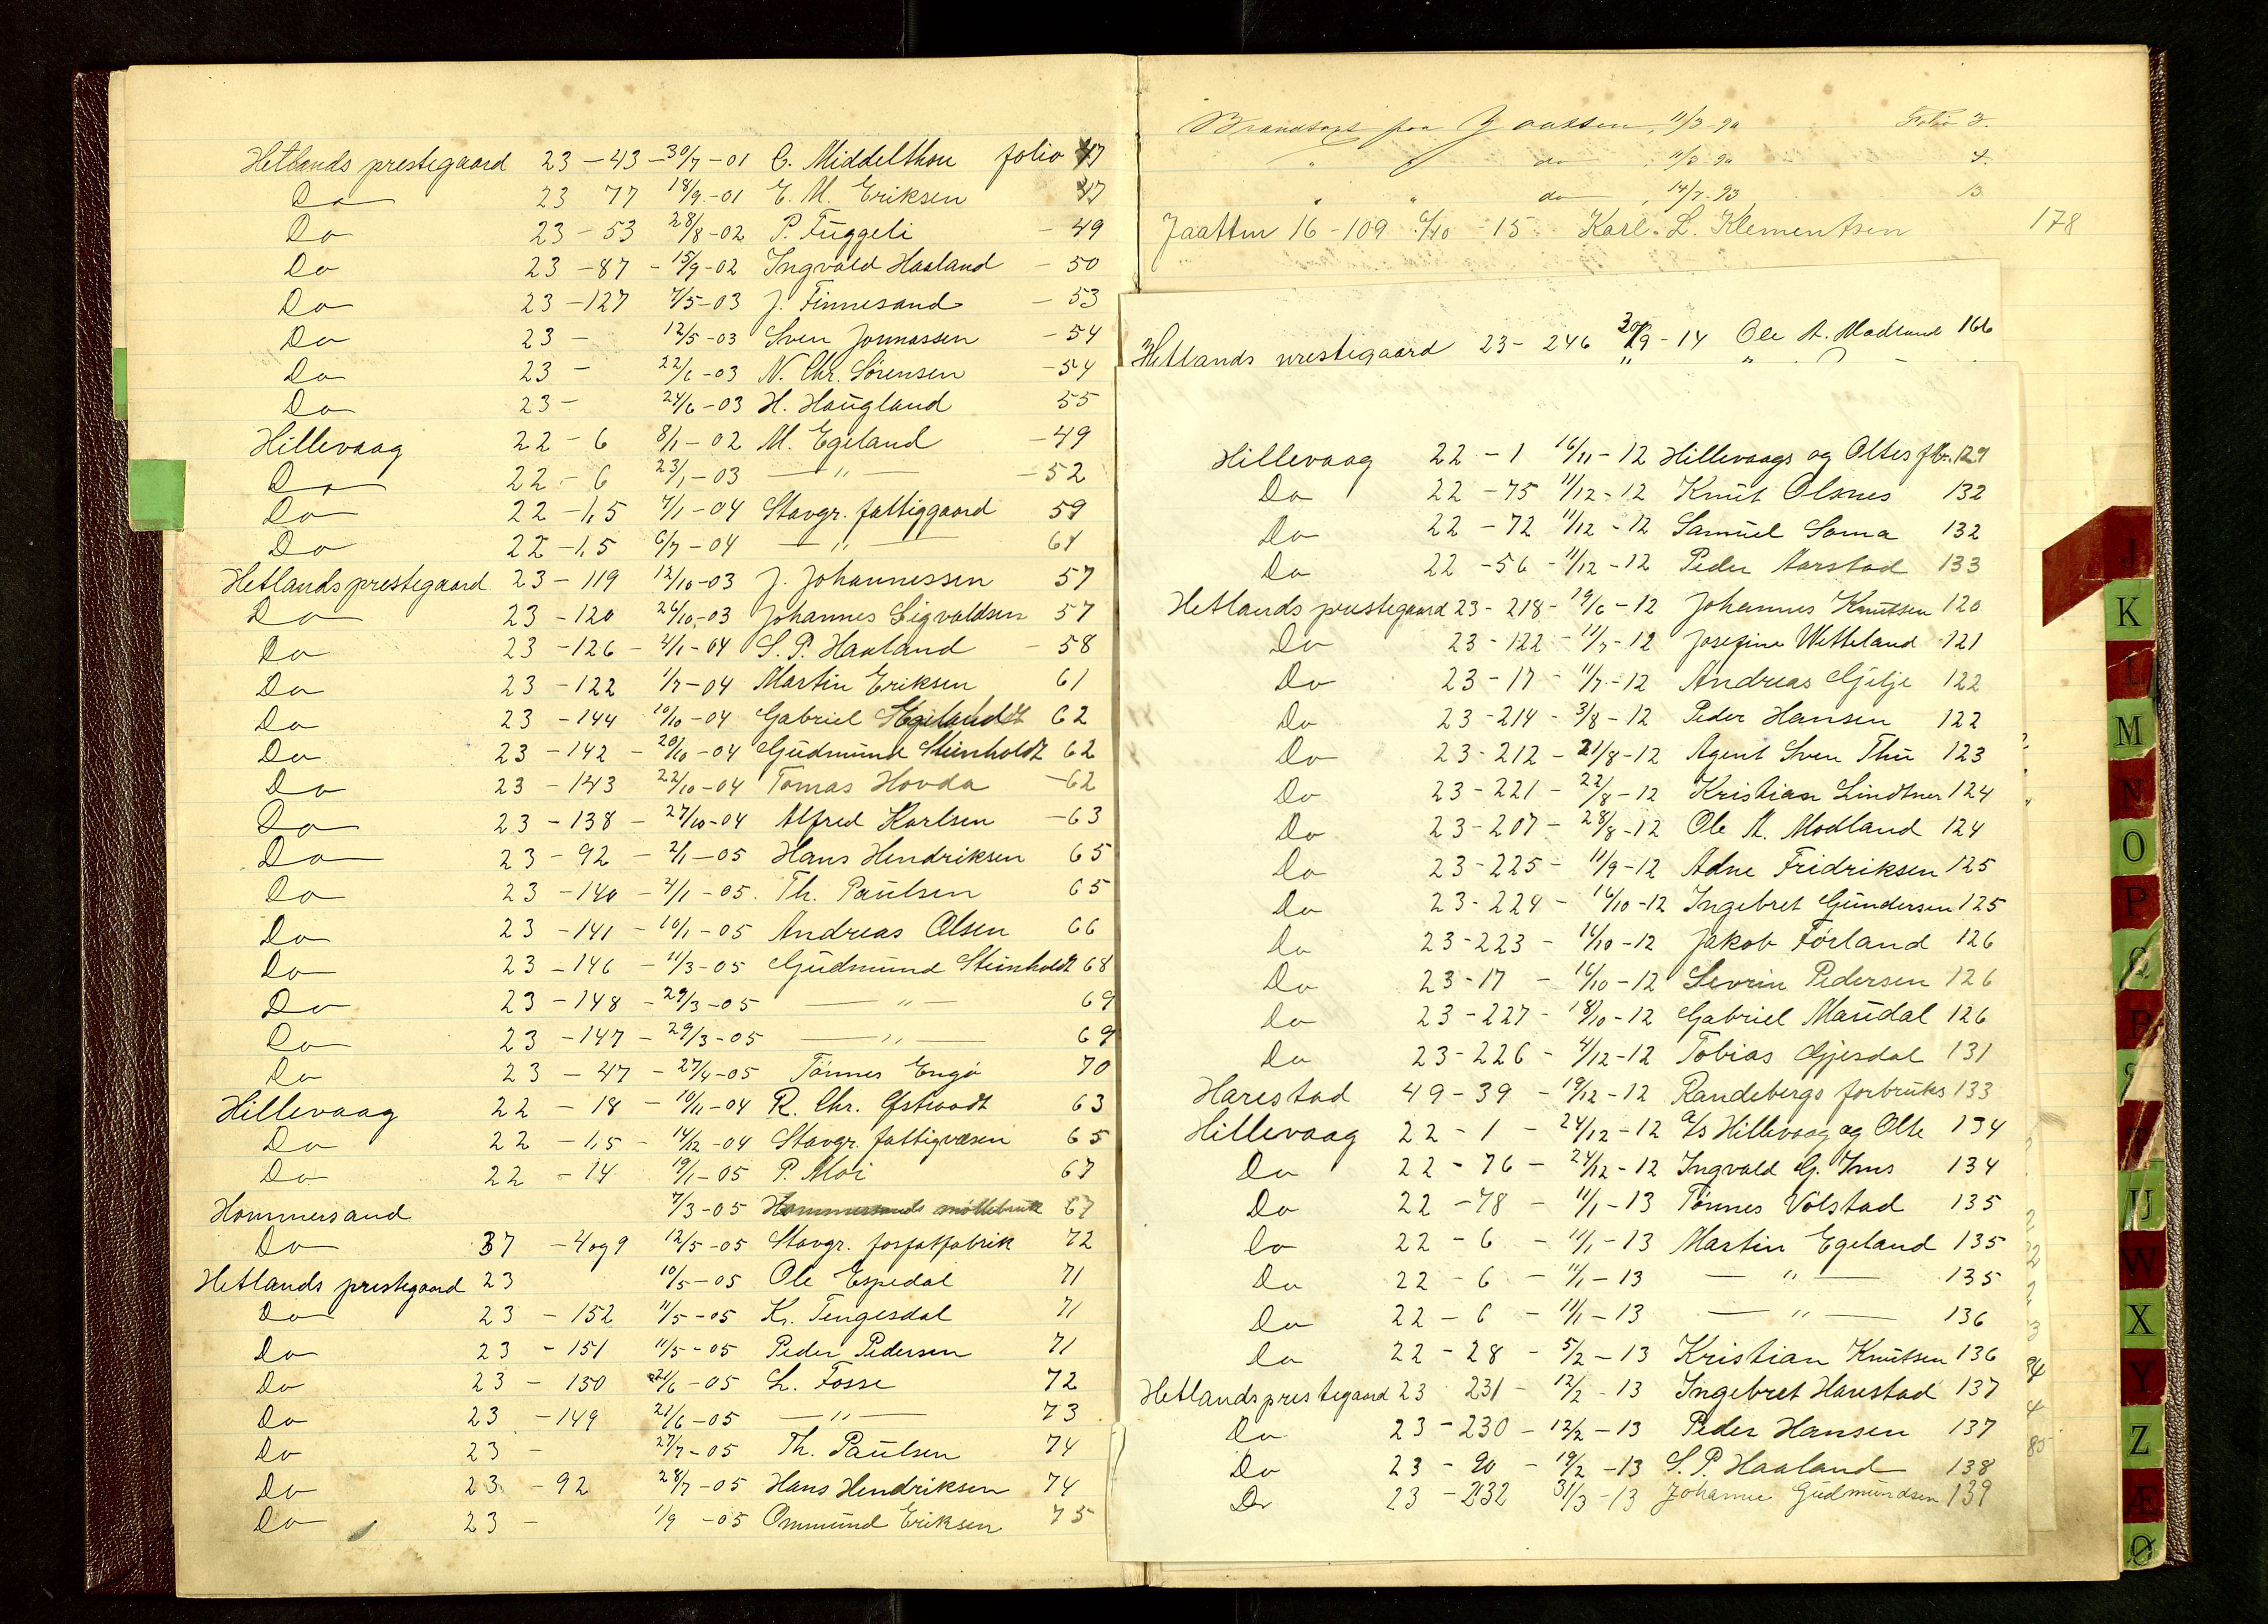 Hetlands prestegaard 23 – 43 – 30/7 – 01 C. Middelthon folio 47
Do 23 77 18/9 – 01 E. M. Eriksen 47
Do 23 – 53 28/8 – 02 P. Fuggeli – 49
Do 23 – 87 – 15/9 – 02 Ingvald Haaland – 50
Do 23 – 127 7/5 – 03 J. Finnesand – 53
Do 23 – 12/5 – 03 Sven Jonnassen – 54
Do 23 – 22/6 – 03 N. Chr. Sörensen – 54
Do 23 – 24/6 – 03 H. Haugland 55
Hillevaag 22 – 6 8/1 – 02 M. Egeland – 49
Do 22 – 6 23/1 – 03 — " — – 52
Do 22 – 1,5 7/1 – 04 Stavgr. fattiggaard 59
Do 22 – 1,5 6/7 – 04 — " — 61
Hetlands prestegaard 23 – 119 12/10 – 03 J. Johannessen 57
Do 23 – 120 26/10 – 03 Johannes Sigvaldsen 57
Do 23 – 126 – 2/1 – 04 S. P. Haaland – 58
Do 23 – 122 1/7 – 04 Martin Eriksen 61
Do 23 – 144 10/10 – 04 Gabriel 62
Do 23 – 142 – 20/10 – 04 Gudmund Steinholdt 62
Do 23 – 143 22/10 – 04 Tomas Hovda – 62
Do 23 – 138 – 27/10 – 04 Alfred Karlsen – 63
Do 23 – 92 – 2/1 – 05 Hans Hendriksen 65
Do 23 – 140 – 2/1 – 05 Th. Paulsen 65
Do 23 – 141 – 10/1 – 05 Andreas Olsen 66
Do 23 – 146 – 11/3 – 05 Gudmund Steinholdt 68
Do 23 – 148 – 29/3 – 05 — " — 69
Do 23 – 147 – 29/3 – 05 — " — 69
Do 23 – 47 – 27/4 – 05 Tönnes Engö 70
Hillevaag 22 – 18 – 10/11 – 04 R. Chr. 63
Do 22 – 1,5 – 14/12 – 04 Stavgr. fattigvæsen 65
Do 22 – 14 19/1 – 05 P. Moi 67
Hommersand 7/3 – 05 Hommersands möllebruk 67
Do 37 – 4 og 9 12/5 – 05 Stavgr. fosfatfabrik 72
Hetlands prestegaard 23 10/5 – 05 Ole Espedal 71
Do 23 – 152 11/5 – 05 Kr. Tengesdal 71
Do 23 – 151 11/5 – 05 Peder Pedersen 71
Do 23 – 150 21/6 – 05 L. Fosse 72
Do 23 – 149 21/6 – 05 — " — 73
Do 23 – 27/7 – 05 Th. Paulsen 74
Do 23 – 92 28/7 – 05 Hans Hendriksen 74
Do 23 – 1/9 – 05 Ommund Eriksen 75
Brandtaxt paa Jaatten, 11/3 90 Folio 3.
" " do , 11/3 90 4.
" " do , 14/7 93 13
Jaatten 16 – 109 6/10 – 15 Karl. L. Klementsen 178
Hetlands prestegaard 23 – 246 30/9 – 14 Ole A. Madland 166
Hillevaag 22 – 1 16/11 – 12 Hillevaags og Altes fbr. 129
Do 22 – 75 11/12 – 12 Knut Olsnes 132
Do 22 – 72 11/12 – 12 Samuel Soma 132
Do 22 – 56 – 11/12 – 12 Peder Aarstad 133
Hetlands prestegaard 23 – 218 – 19/6 – 12 Johannes Knutsen 120
Do 23 – 122 – 11/7 – 12 Josefine Wetteland 121
Do 23 – 17 – 11/7 – 12 Andreas Gjilje 122
Do 23 – 214 – 3/8 – 12 Peder Hansen 122
Do 23 – 212 – 21/8 – 12 Agent Sven Thu 123
Do 23 – 221 – 22/8 – 12 Kristian Lindtner 124
Do 23 – 207 – 28/8 – 12 Ole A. Modland 124
Do 23 – 225 – 11/9 – 12 Adne Fridriksen 125
Do 23 – 224 – 16/10 – 12 Ingebret Gundersen 125
Do 23 – 223 – 16/10 – 12 Jakob Förland 126
Do 23 – 17 – 16/10 – 12 Sevrin Pedersen 126
Do 23 – 227 – 18/10 – 12 Gabriel Maudal 126
Do 23 – 226 – 4/12 – 12 Tobias Gjesdal 131
Harestad 49 – 39 – 19/12 – 12 Randebergs forbruks 133
Hillevaag 22 – 1 – 24/12 – 12 A/s Hillevaag og Alte 134
Do 22 – 76 – 24/12 – 12 Ingvald G. Ims 134
Do 22 – 78 – 11/1 – 13 Tönnes Volstad 135
Do 22 – 6 – 11/1 – 13 Martin Egeland 135
Do 22 – 6 – 11/1 – 13 — " — 135
Do 22 – 6 – 11/1 – 13 — " — 136
Do 22 – 28 – 5/2 – 13 Kristian Knutsen 136
Hetlands prestegaard 23 231 – 12/2 – 13 Ingebret Harestad 137
Do 23 – 230 – 12/2 – 13 Peder Hansen 137
Do 23 – 90 – 19/2 – 13 S. P. Haaland 138
Do 23 – 232 31/3 – 13 Johanne Gudmundsen 139
J
K
L
M
N
O
P
Q
R
S
T
U
W
X
Y
Z
Æ
Ø